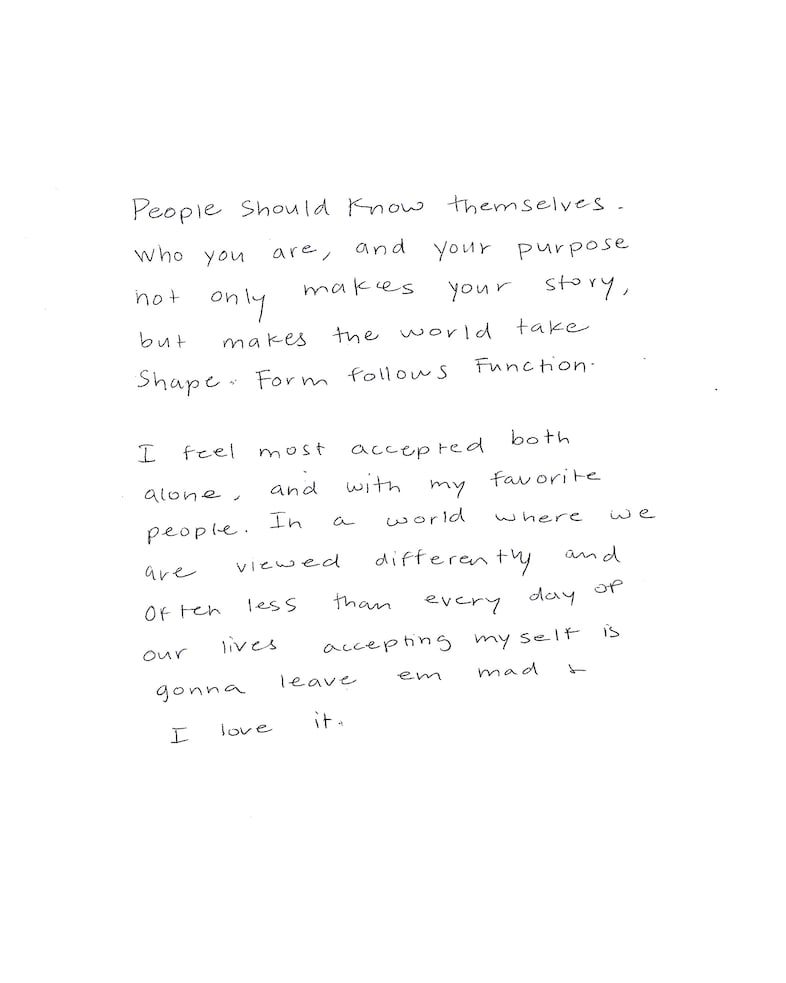 People Should Know themselves.
Who you are, and your purpose
not only makes your story,
but makes the world take
Shape. Form follows Function.
I feel most accepted both
alone, and with my favorite
people. In a world where we
are viewed differently and
Often less than every day of
our lives accepting myself is
gonna leave em mad &
I love it.